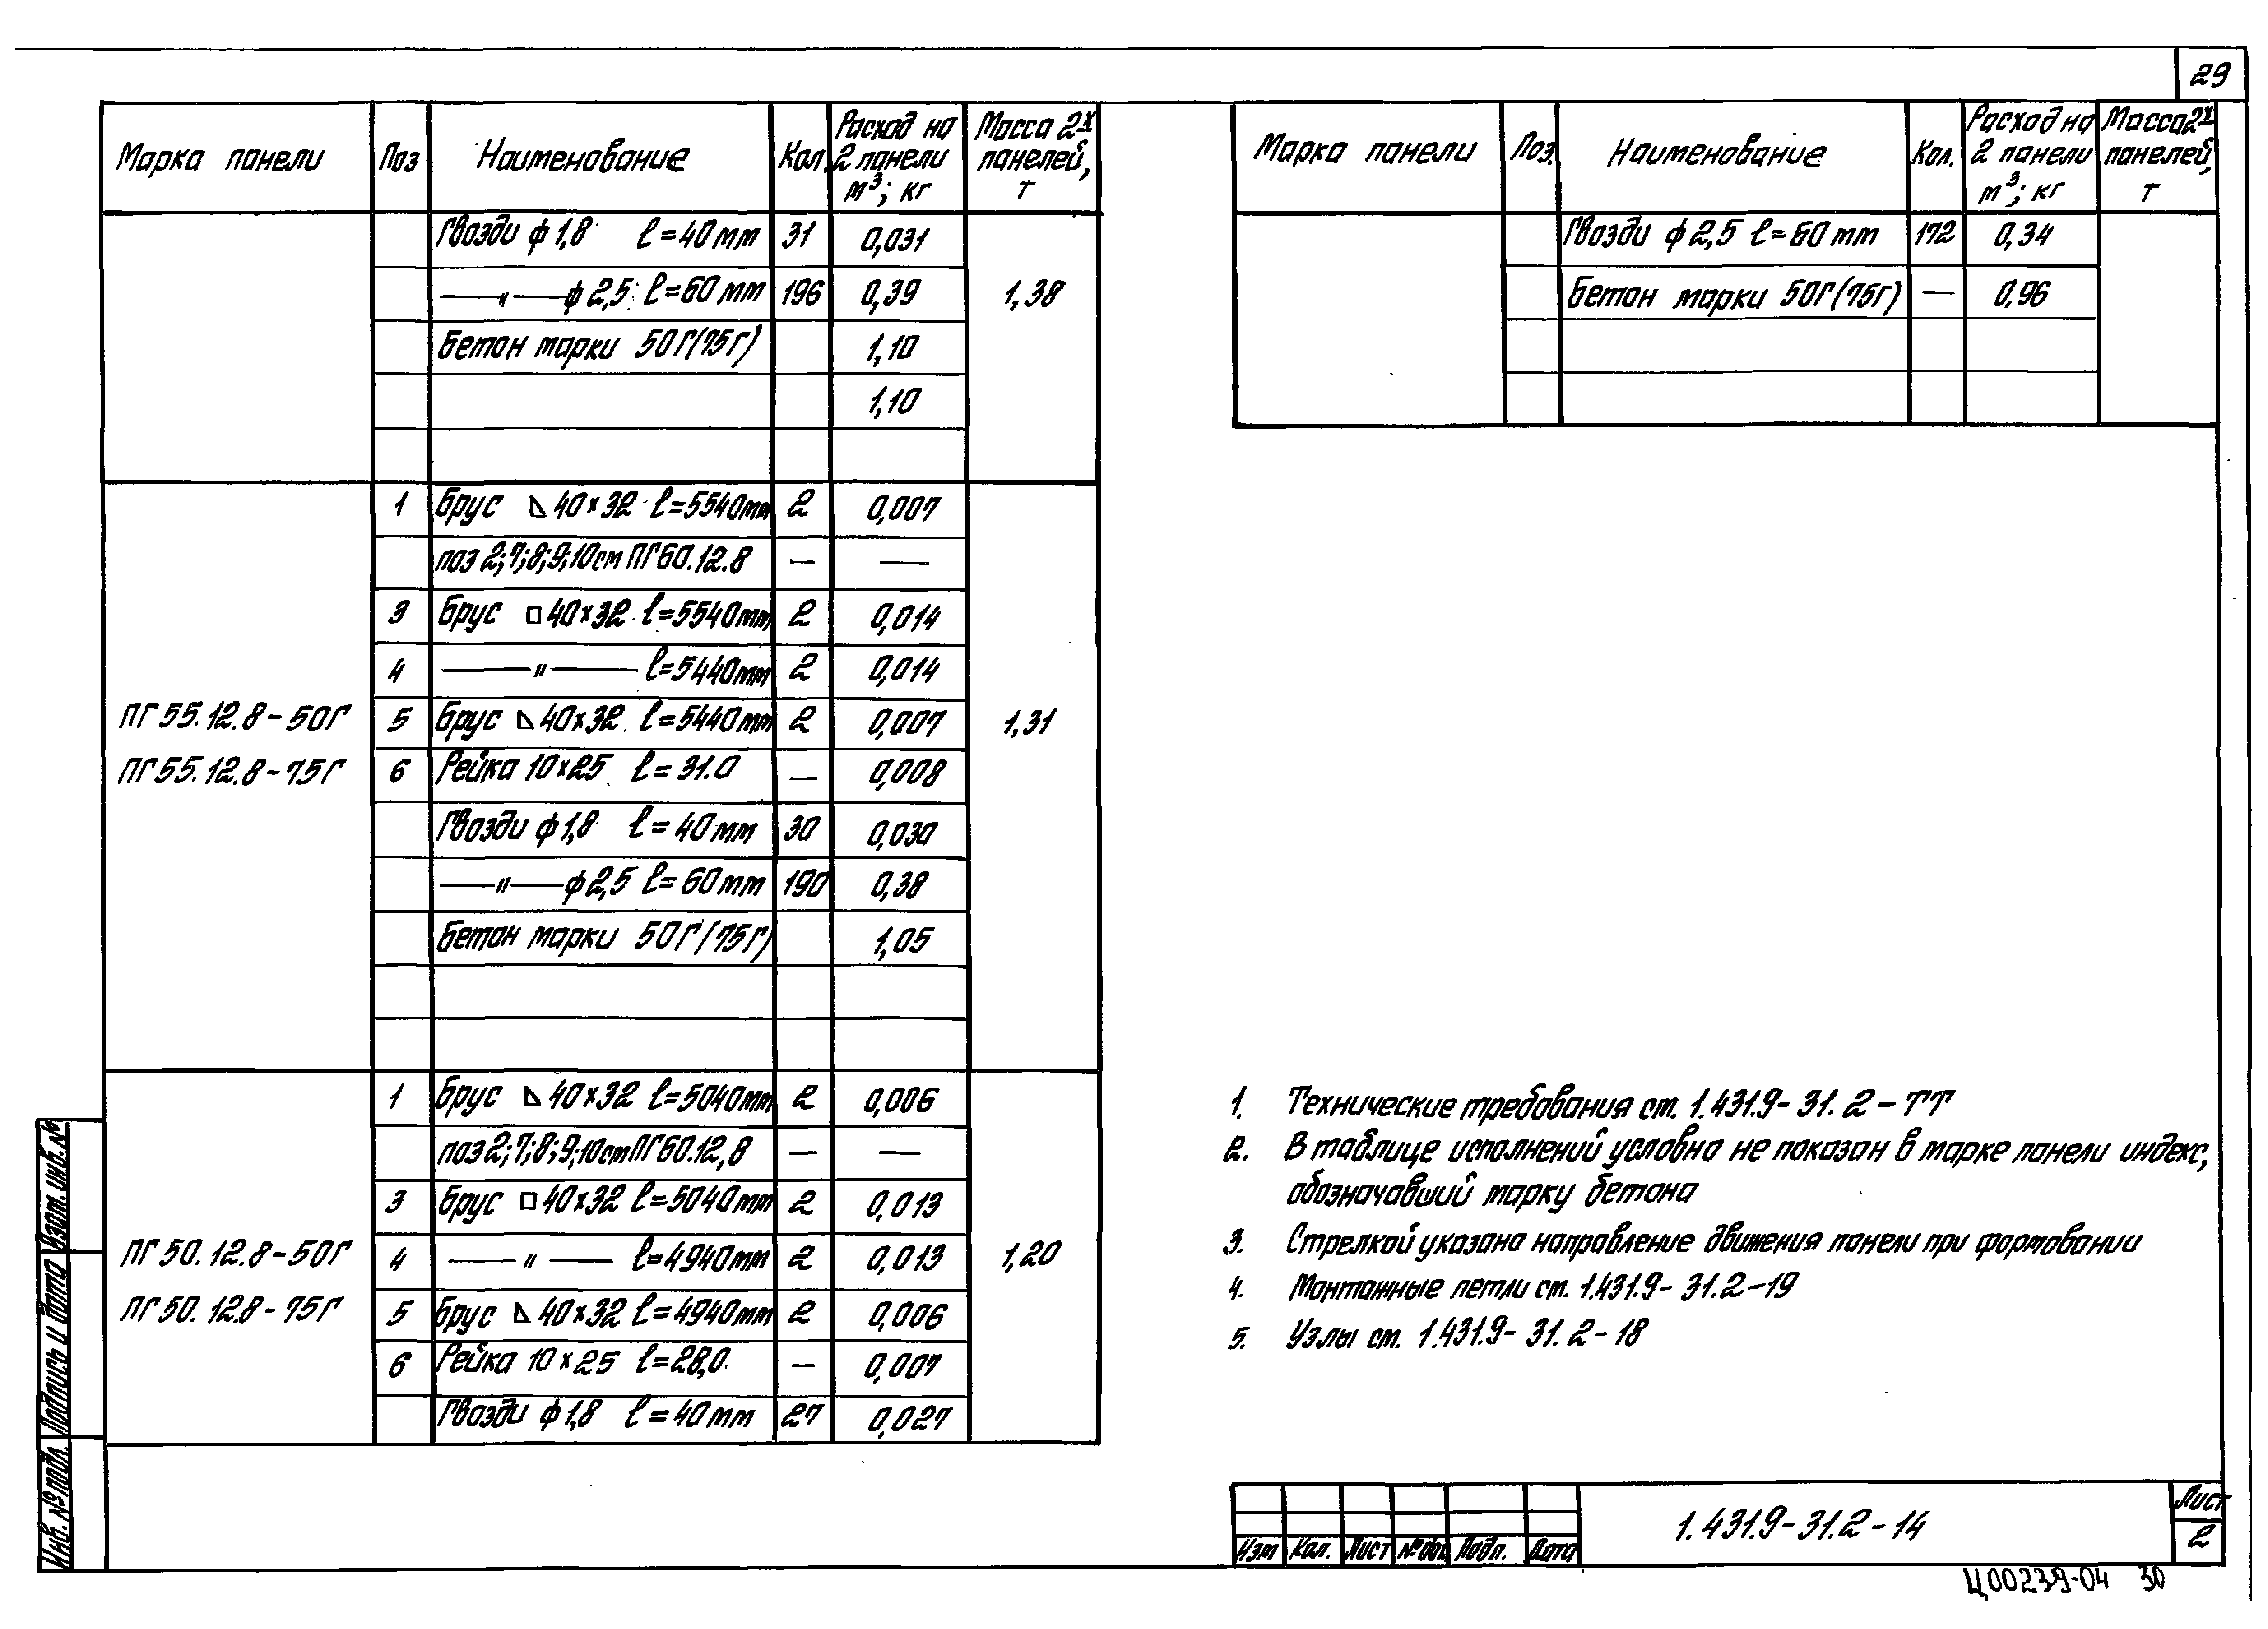 29
Марка панели Поз Наименование Кол. Расход на 2 панели м³; кг Масса 2х панелей, т
Гвозди ф 1,8 l=40мм 31 0,031
—"— ф 2,5 l=60мм 196 0,39 1,38
Бетон марки 50Г(75Г) 1,10
1,10
1 Брус ◺ 40×32 l=5540мм 2 0,007
поз 2;7;8;9;10 см ПГ 60.12.8 — —
3 Брус □ 40×32 l=5540мм 2 0,014
4 —"— l=5440мм 2 0,014
ПГ 55.12.8-50Г 5 Брус ◺ 40×32 l=5440мм 2 0,007 1,31
ПГ 55.12.8-75Г 6 Рейка 10×25 l=31.0 — 0,008
Гвозди ф 1,8 l=40мм 30 0,030
—"— ф 2,5 l=60мм 190 0,38
Бетон марки 50Г(75Г) 1,05
1 Брус ◺ 40×32 l=5040мм 2 0,006
поз 2;7;8;9;10 см ПГ 60.12,8 — —
3 Брус □ 40×32 l=5040мм 2 0,013
ПГ 50.12.8-50Г 4 —"— l=4940мм 2 0,013 1,20
ПГ 50.12.8-75Г 5 Брус ◺ 40×32 l=4940мм 2 0,006
6 Рейка 10×25 l=28,0 — 0,007
Гвозди ф 1,8 l=40мм 27 0,027
Марка панели Поз. Наименование Кол. Расход на 2 панели м³; кг Масса 2х панелей, т
Гвозди ф 2,5 l=60мм 172 0,34
Бетон марки 50Г(75Г) — 0,96
1. Технические требования см. 1.431.9-31.2-ТТ
2. В таблице исполнений условно не показан в марке панели индекс,
обозначавший марку бетона
3. Стрелкой указано направление движения панели при формовании
4. Монтажные петли см. 1.431.9-31.2-19
5. Узлы см. 1.431.9-31.2-18
Взам. инв. №
Подпись и дата
Инв. № подл.
Изм Кол. Лист № док Подп. Дата
1.431.9-31.2-14
Лист
2
Ц00239-04 30